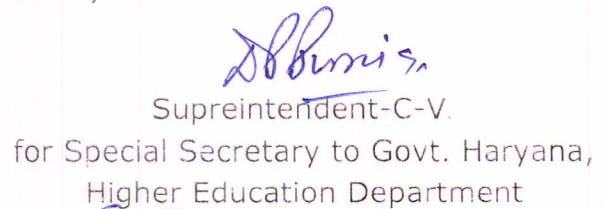 Supreintendent-C-V.
for Special Secretary to Govt. Haryana,
Higher Education Department